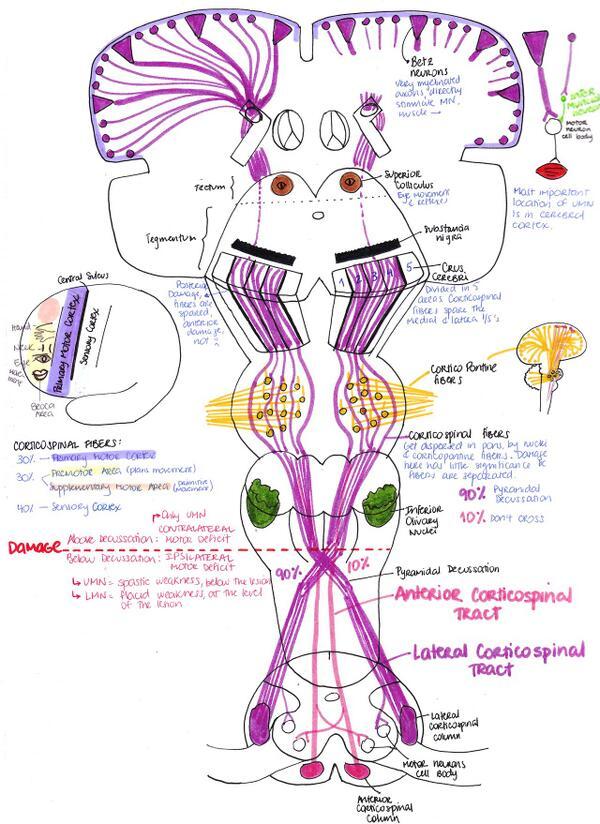 Betz
neurons
very myelinated
axons, directly
stimulate MN,
muscle →
motor
neuron
cell body
Most important
location of UMN
is in cerebral
cortex.
Tectum
Superior
Colliculus
Eye movement
& reflexes
Tegmentum
Substantia
nigra
Crus
Cerebri
1 2 3 4 5
Divided in 5
areas. Corticospinal
fibers spare the
Medial & lateral 1/5's.
Posterior
Damage,
fibers are
spared,
anterior
damage,
not !!
Central Sulcus
Primary Motor Cortex
Sensory Cortex
Hand
Neck
Eye
Move
ment
Broca
Area
Cortico Pontine
Fibers
CORTICOSPINAL FIBERS:
30% — Primary Motor Cortex
30% Premotor Area (plans movement)
Supplementary Motor Area (movement)
40% - Sensory Cortex
Corticospinal fibers
Get dispersed in pons, by nuclei
& corticopontine fibers. Damage
here has little significance bc
fibers are separated.
90% Pyramidal
Decussation
10% Don't cross
Inferior
Olivary
Nuclei
Only UMN
CONTRALATERAL
Damage Above Decussation: MOTOR Deficit
Below Decussation: IPSILATERAL
MOTOR Deficit
↳ UMN = spastic weakness, below the lesion
↳ LMN = flacid weakness, at the level
of the lesion
90% 10%
Pyramidal Decussation
Anterior Corticospinal
Tract
Lateral Corticospinal
Tract
Lateral
corticospinal
column
Motor neurons
Cell Body
Anterior
Corticospinal
Column